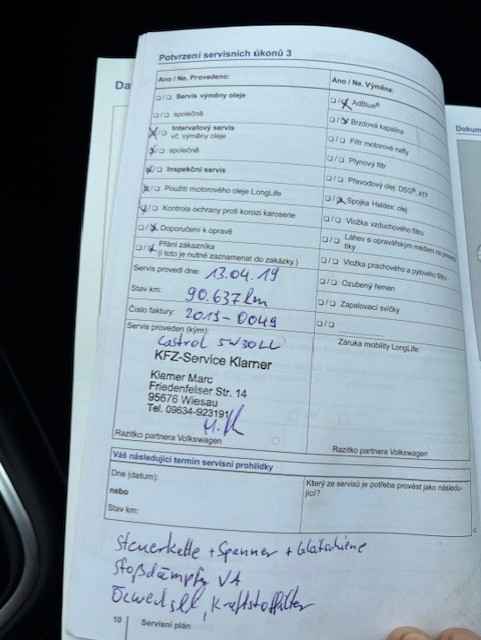 Potvrzení servisních úkonů 3
Ano / Ne. Provedeno:
Servis výměny oleje
společně
Intervalový servis
vč. výměny oleje
společně
Inspekční servis
Použití motorového oleje LongLife
Kontrola ochrany proti korozi karoserie
Doporučení k opravě
Přání zákazníka
(i toto je nutné zaznamenat do zakázky.)
Servis proveďl dne: 13.04.19
Stav km: 90.637km
Číslo faktury: 2019-0049
Servis proveden (kým):
Castrol 5W30LL
KFZ-Service Klarner
Klarner Marc
Friedenfelser Str. 14
95676 Wiesau
Tel. 09634-923191
Razítko partnera Volkswagen
Ano / Ne. Výměna:
AdBlue®
Brzdová kapalina
Filtr motorové nafty
Plynový filtr
Převodový olej DSG®,
Spojka Haldex: olej
Vložka vzduchového filtru
Láhev s opravářským médiem na
tiky
Vložka prachového a pylového filtru
Ozubený řemen
Zapalovací svíčky
Záruka mobility LongLife:
Razítko partnera Volkswagen
Váš následující termín servisní prohlídky
Dne (datum):
nebo
Stav km:
Který ze servisů je potřeba provést jako následu-
jící?
Steuerkette + Spanner + Gleitschiene
Stoßdämpfer VA
Kraftstofffilter
10 Servisní plán
Dokum